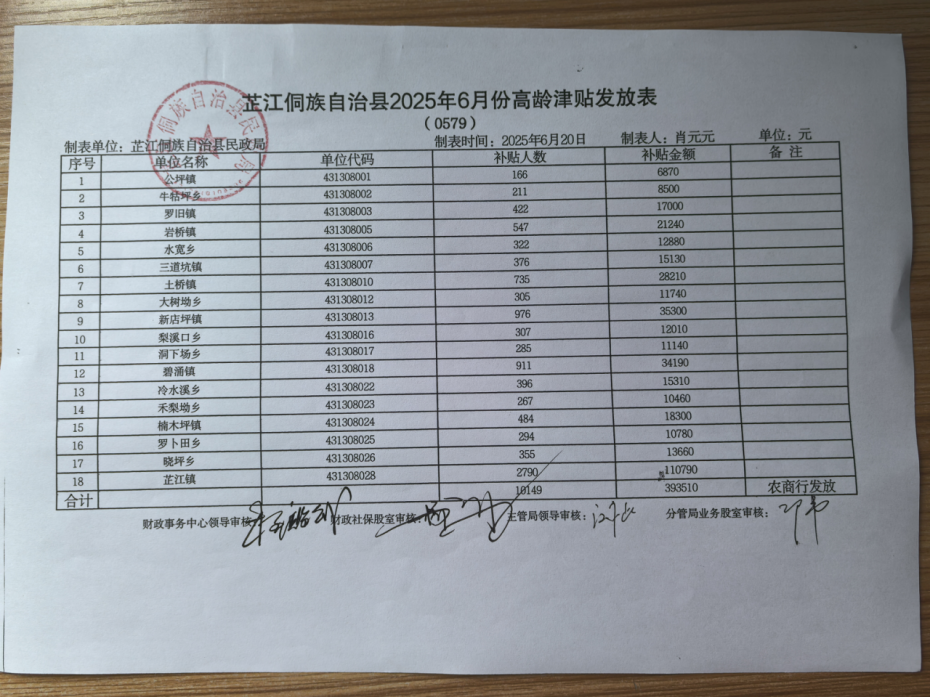 芷江侗族自治县2025年6月份高龄津贴发放表
（0579）
制表单位：芷江侗族自治县民政局 制表时间：2025年6月20日 制表人：肖元元 单位：元
序号 单位名称 单位代码 补贴人数 补贴金额 备 注
1 公坪镇 431308001 166 6870
2 牛牯坪乡 431308002 211 8500
3 罗旧镇 431308003 422 17000
4 岩桥镇 431308005 547 21240
5 水宽乡 431308006 322 12880
6 三道坑镇 431308007 376 15130
7 土桥镇 431308010 735 28210
8 大树坳乡 431308012 305 11740
9 新店坪镇 431308013 976 35300
10 梨溪口乡 431308016 307 12010
11 洞下场乡 431308017 285 11140
12 碧涌镇 431308018 911 34190
13 冷水溪乡 431308022 396 15310
14 禾梨坳乡 431308023 267 10460
15 楠木坪镇 431308024 484 18300
16 罗卜田乡 431308025 294 10780
17 晓坪乡 431308026 355 13660
18 芷江镇 431308028 2790 110790
合计 10149 393510 农商行发放
财政事务中心领导审核： 财政社保股室审核： 主管局领导审核： 分管局业务股室审核：